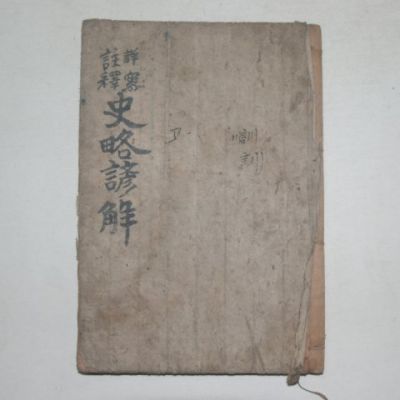 詳密
註釋
史略諺解
訓
訓